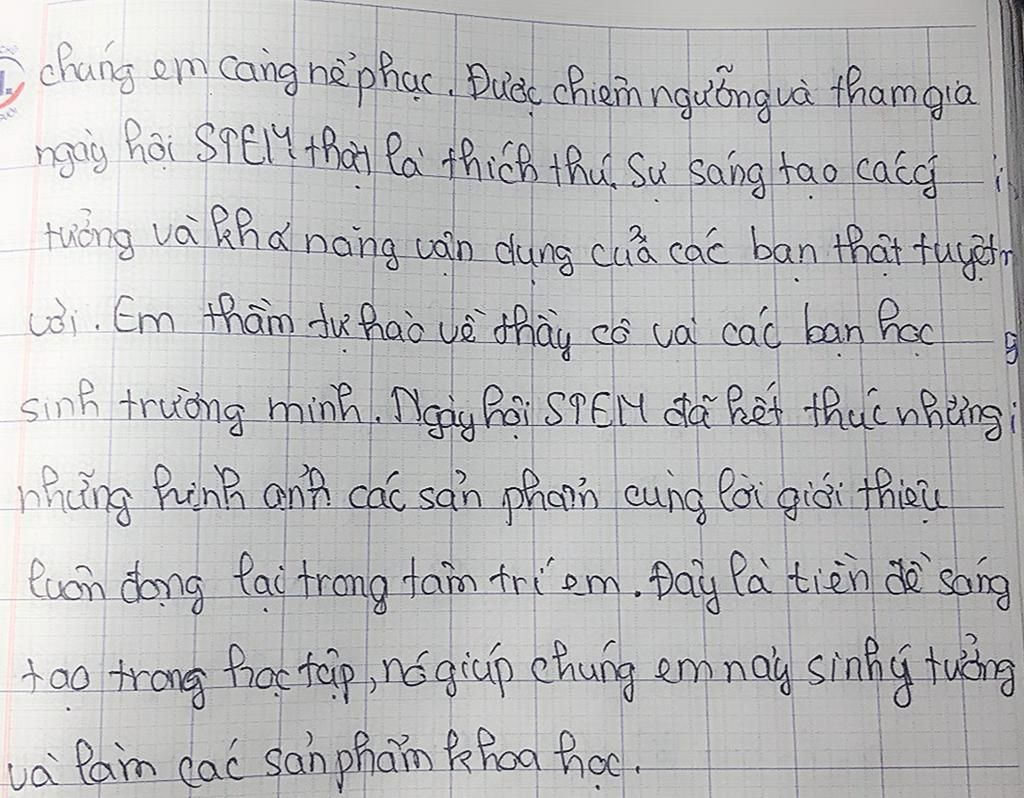 chúng em càng nể phục. Được chiêm ngưỡng và tham gia
ngày hội STEM thật là thích thú. Sự sáng tạo các ý
tưởng và khả năng vận dụng của các bạn thật tuyệt
vời. Em thầm tự hào về thầy cô và các bạn học
sinh trường mình. Ngày hội STEM đã kết thúc nhưng
những hình ảnh các sản phẩm cùng lời giới thiệu
luôn đọng lại trong tâm trí em. Đây là tiền đề sáng
tạo trong học tập, nó giúp chúng em nảy sinh ý tưởng
và làm các sản phẩm khoa học.